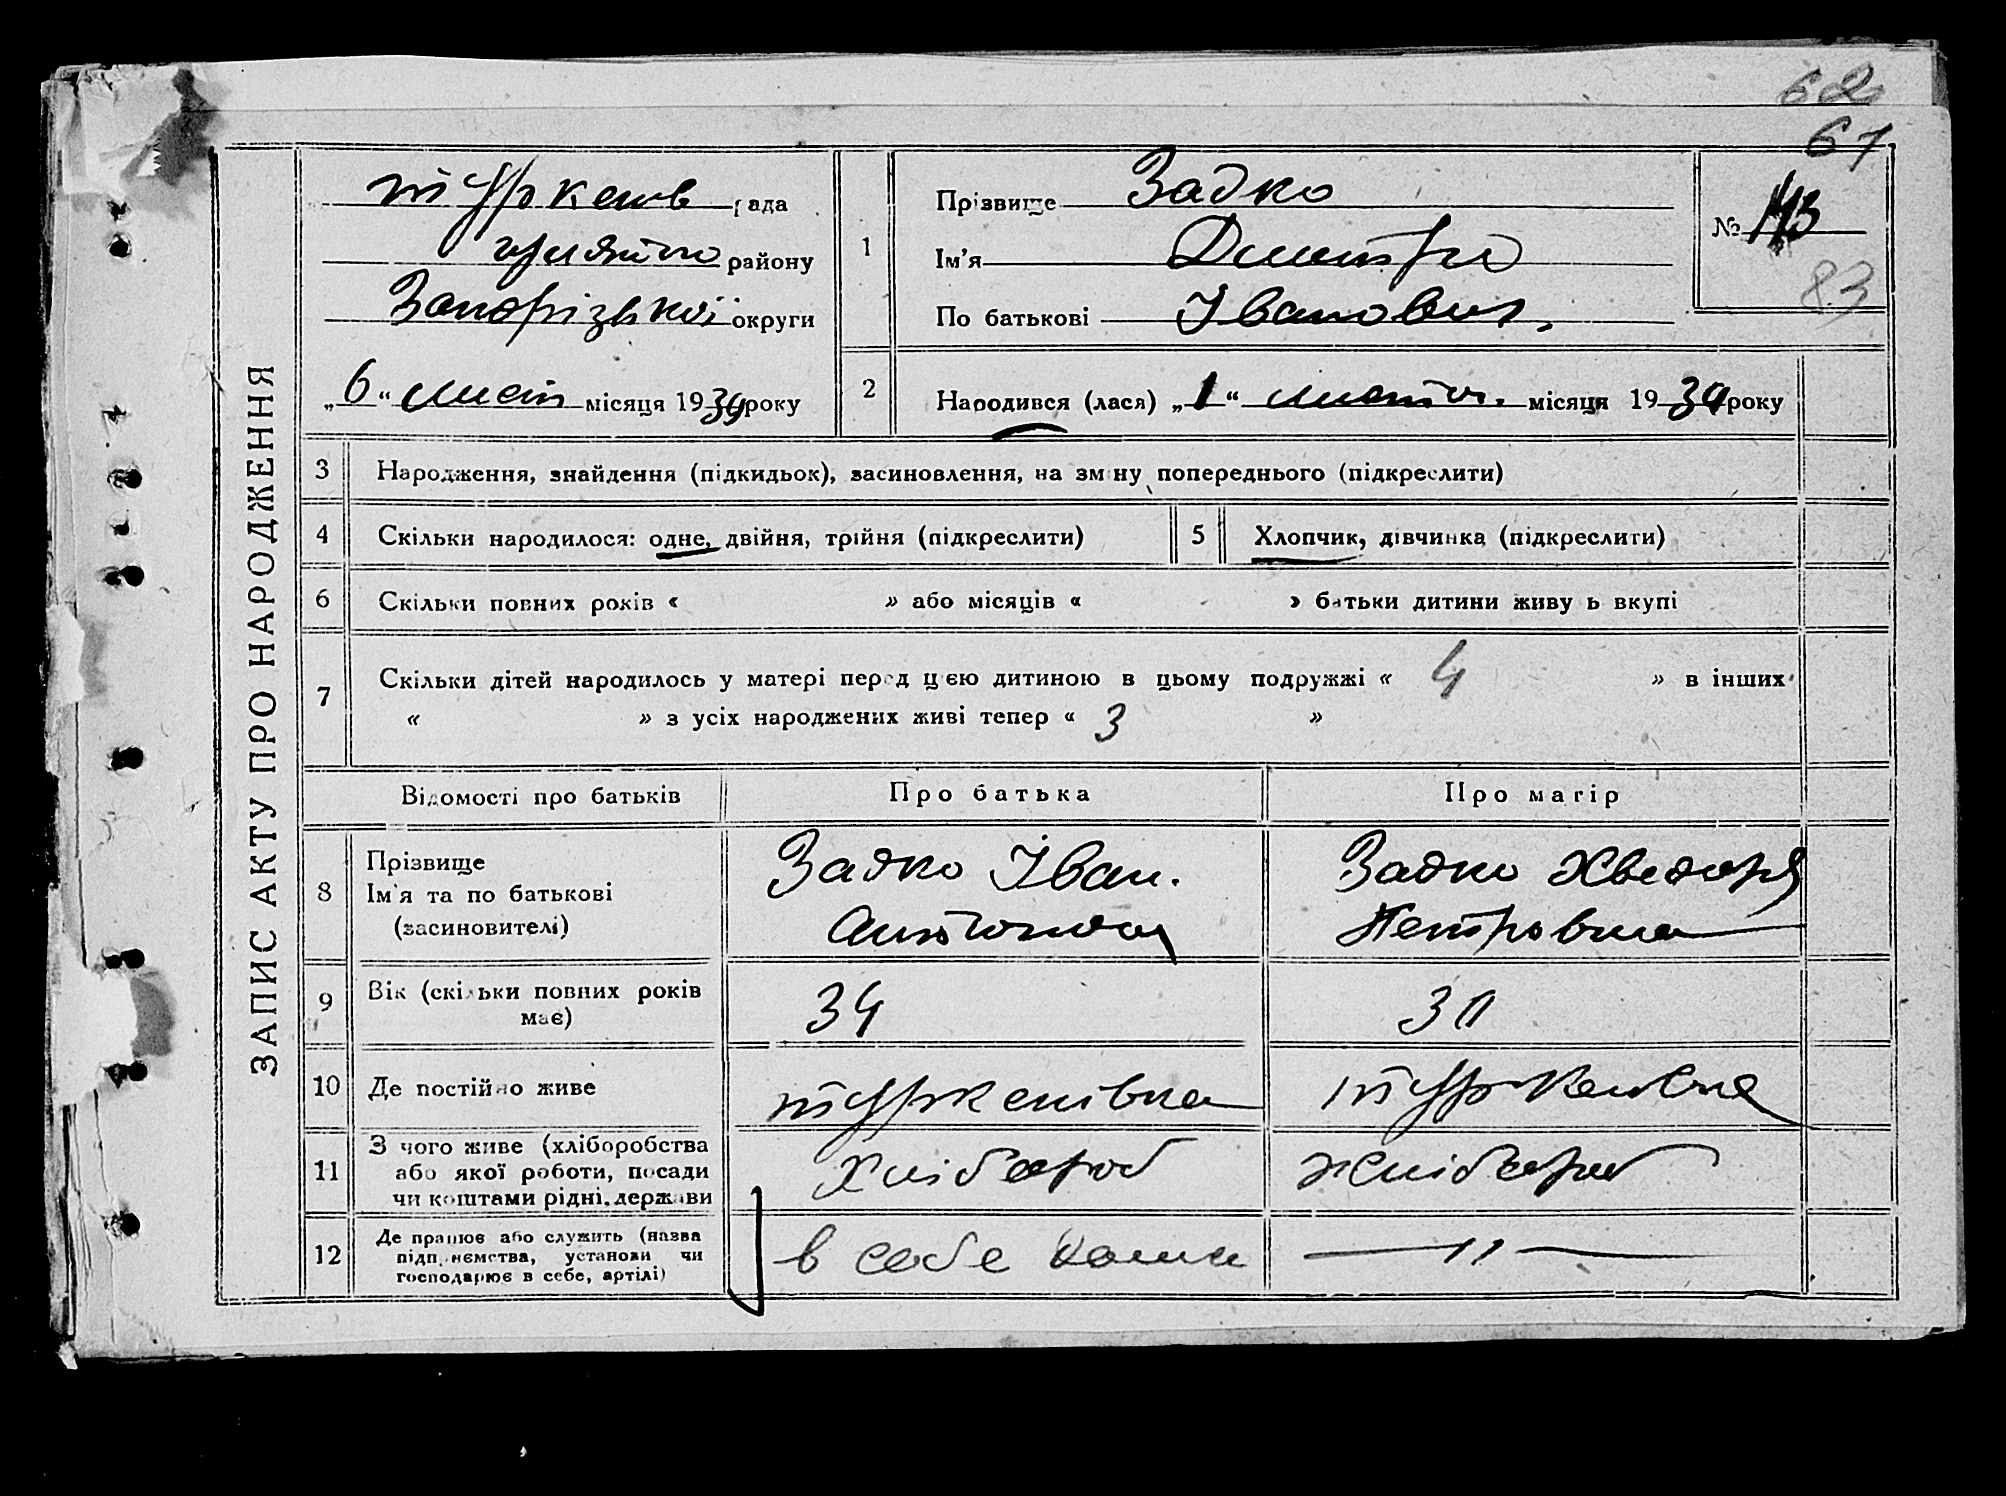 62
67
ЗАПИС АКТУ ПРО НАРОДЖЕННЯ
туркенів рада
району
Запорізької округи
„6“ лист місяця 1930 року
1 Прізвище Задко
Ім’я Дмитро
По батькові Іванович.
№ 113
83
2 Народився (лася) „1“ листоп. місяця 1930 року
3 Народження, знайдення (підкидьок), засиновлення, на зміну попереднього (підкреслити)
4 Скільки народилося: одне, двійня, трійня (підкреслити)
5 Хлопчик, дівчинка (підкреслити)
6 Скільки повних років « » або місяців « » батьки дитини живуть вкупі
7 Скільки дітей народилось у матері перед цією дитиною в цьому подружжі « 4 » в інших
« » з усіх народжених живі тепер « 3 »
Відомості про батьків
Про батька
Про матір
8 Прізвище
Ім’я та по батькові
(засиновителі)
Задко Іван.
Антонович
Задко Хведоря
Петровна
9 Вік (скільки повних років
має)
34
30
10 Де постійно живе
туркенівка
туркенівка
11 З чого живе (хліборобства
або якої роботи, посади
чи коштами рідні, держави
Хлібороб
хлібороб
12 Де працює або служить (назва
підприємства, установи чи
господарює в себе, артілі)
в себе дома
— 〃 —